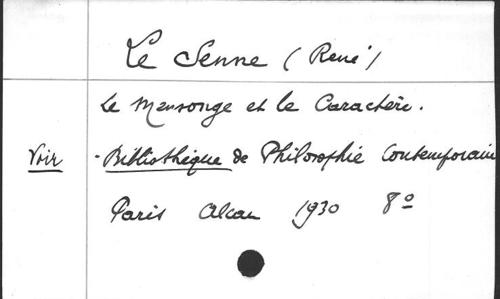 Le Senne (René)
Le Mensonge et le Caractère.
Voir - Bibliothèque de Philosophie Contemporain
Paris Alcan 1930 8º